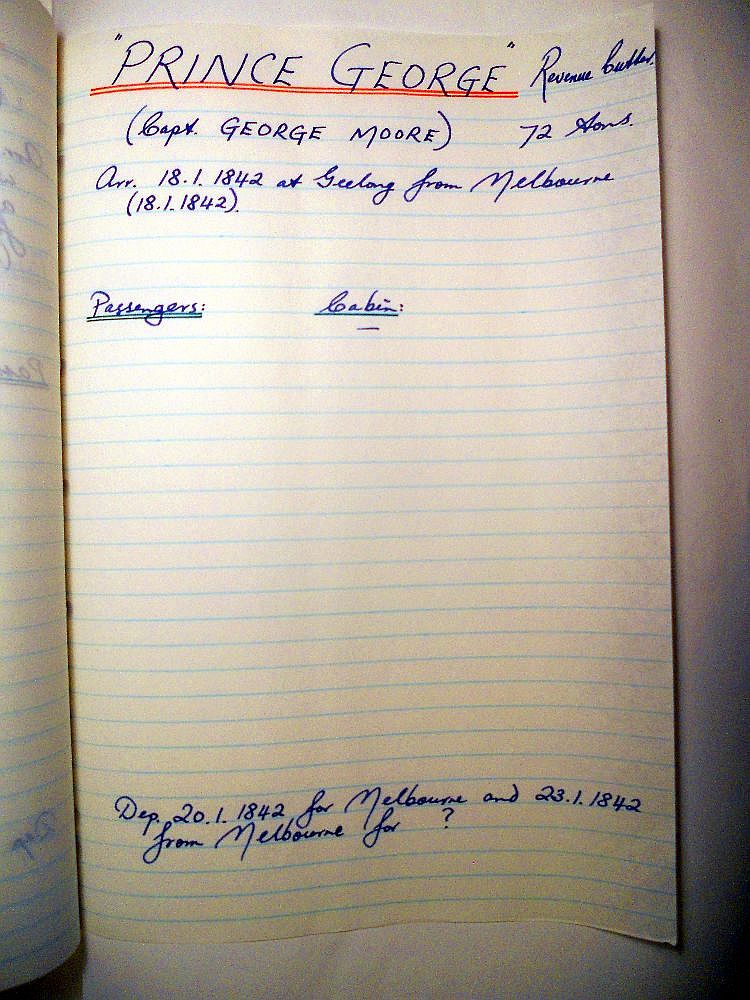 "PRINCE GEORGE" Revenue Cutter.
(Capt. GEORGE MOORE) 72 tons.
Arr. 18.1.1842 at Geelong from Melbourne
(18.1.1842).
Passengers: Cabin:
—
Dep. 20.1.1842 for Melbourne and 23.1.1842
from Melbourne for ?